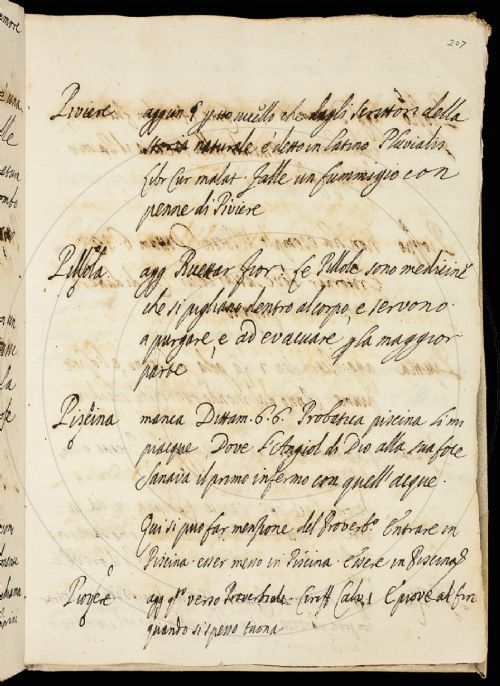 207
Piviere aggiun
uccello che dagli scrittori della
storia naturale è detto in latino Pluvialis
Libr Cur malat. falle un fummigio con
penne di Piviere
Pillola agg Ricettar fior: Le Pillole sono medicine
che si pigliano dentro al corpo, e servono
a purgare, e ad evacuare p la maggior
parte
Piscina manca Dittam. 6. 6. Probatica piscina li mi
piacque Dove l'Angiol di Dio alla sua foce
Sanava il primo infermo con quell' acque.
Qui si può far menzione del Proverbo Entrare in
Piscina. esser messo in Piscina. Essere in Piscina
Piovere agg verso Proverbiale. Ciriff Calv. 1 E piove al fin
quando si spesso tuona